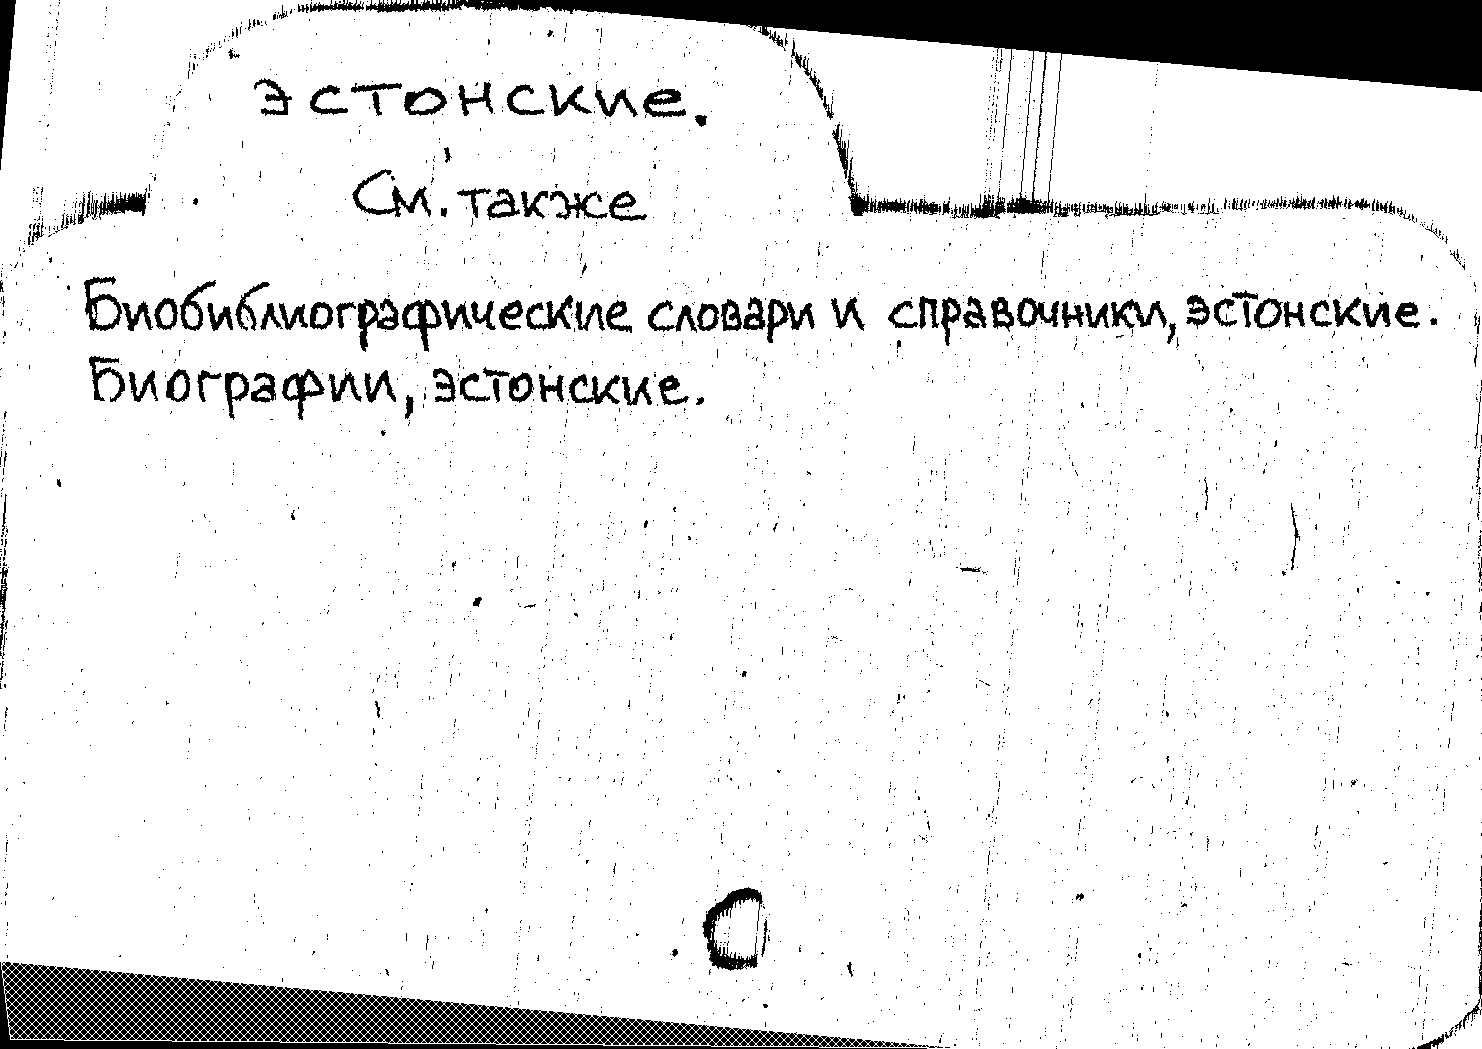 эстонские.
См. также
Биобиблиографические словари и справочники, эстонские.
Биографии, эстонские.